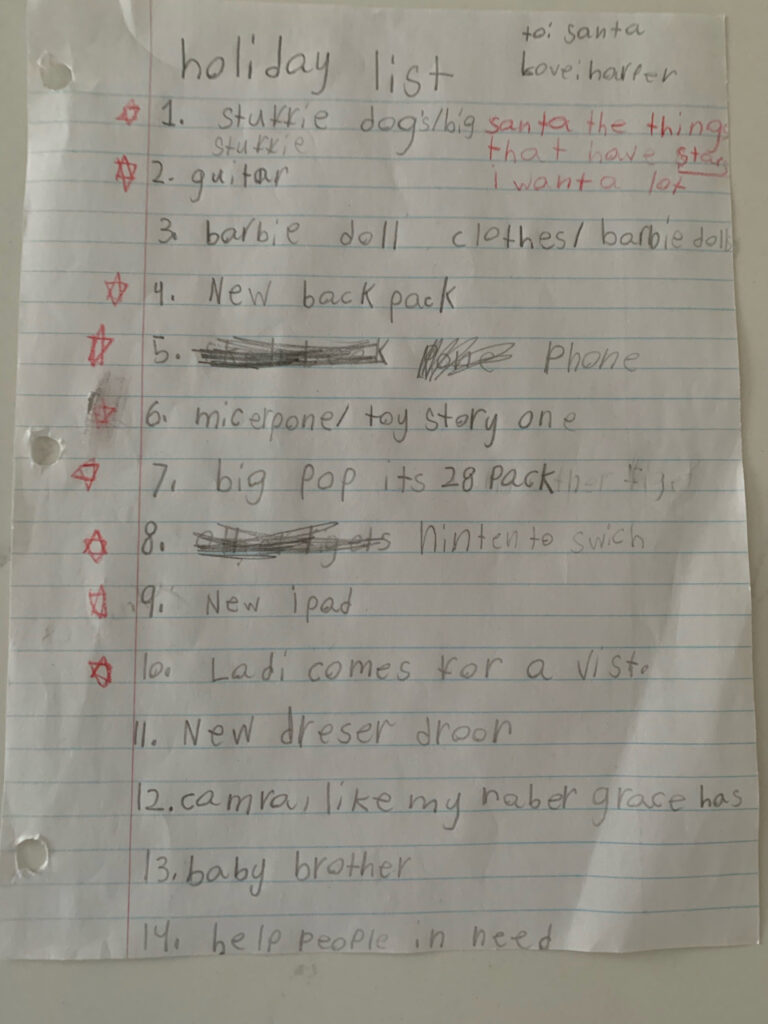 to: santa
holiday list
love: harper
1. stuffie dog's/big
stuffie
santa the things
that have stars
i want a lot
2. guitar
3. barbie doll clothes/ barbie dolls
4. New back pack
5. Phone
6. micerpone/ toy story one
7. big pop its 28 pack
8. ninten to swich
9. New ipad
10. Ladi comes for a vist.
11. New dreser droor
12. camra, like my naber grace has
13. baby brother
14. help people in need